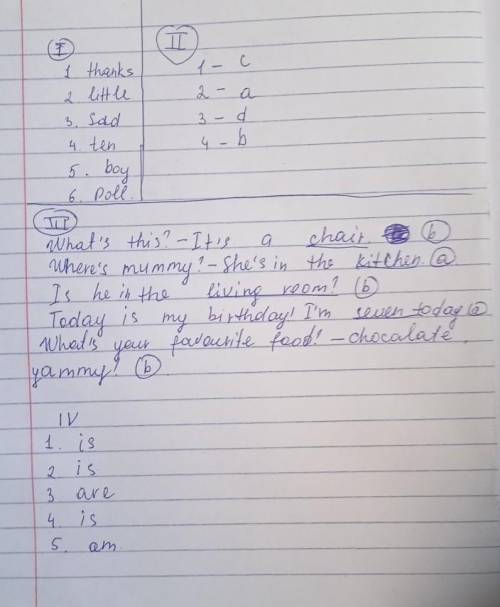 I
1 thanks
2 little
3. Sad
4. ten
5. boy
6. Doll.
II
1 - c
2 - a
3 - d
4 - b
III
What's this? - It's a chair. (b)
Where's mummy? - She's in the kitchen. (a)
Is he in the living room? (b)
Today is my birthday! I'm seven today (a)
What's your favourite food? - chocalate,
yammy! (b)
IV
1. is
2 is
3 are
4. is
5. am